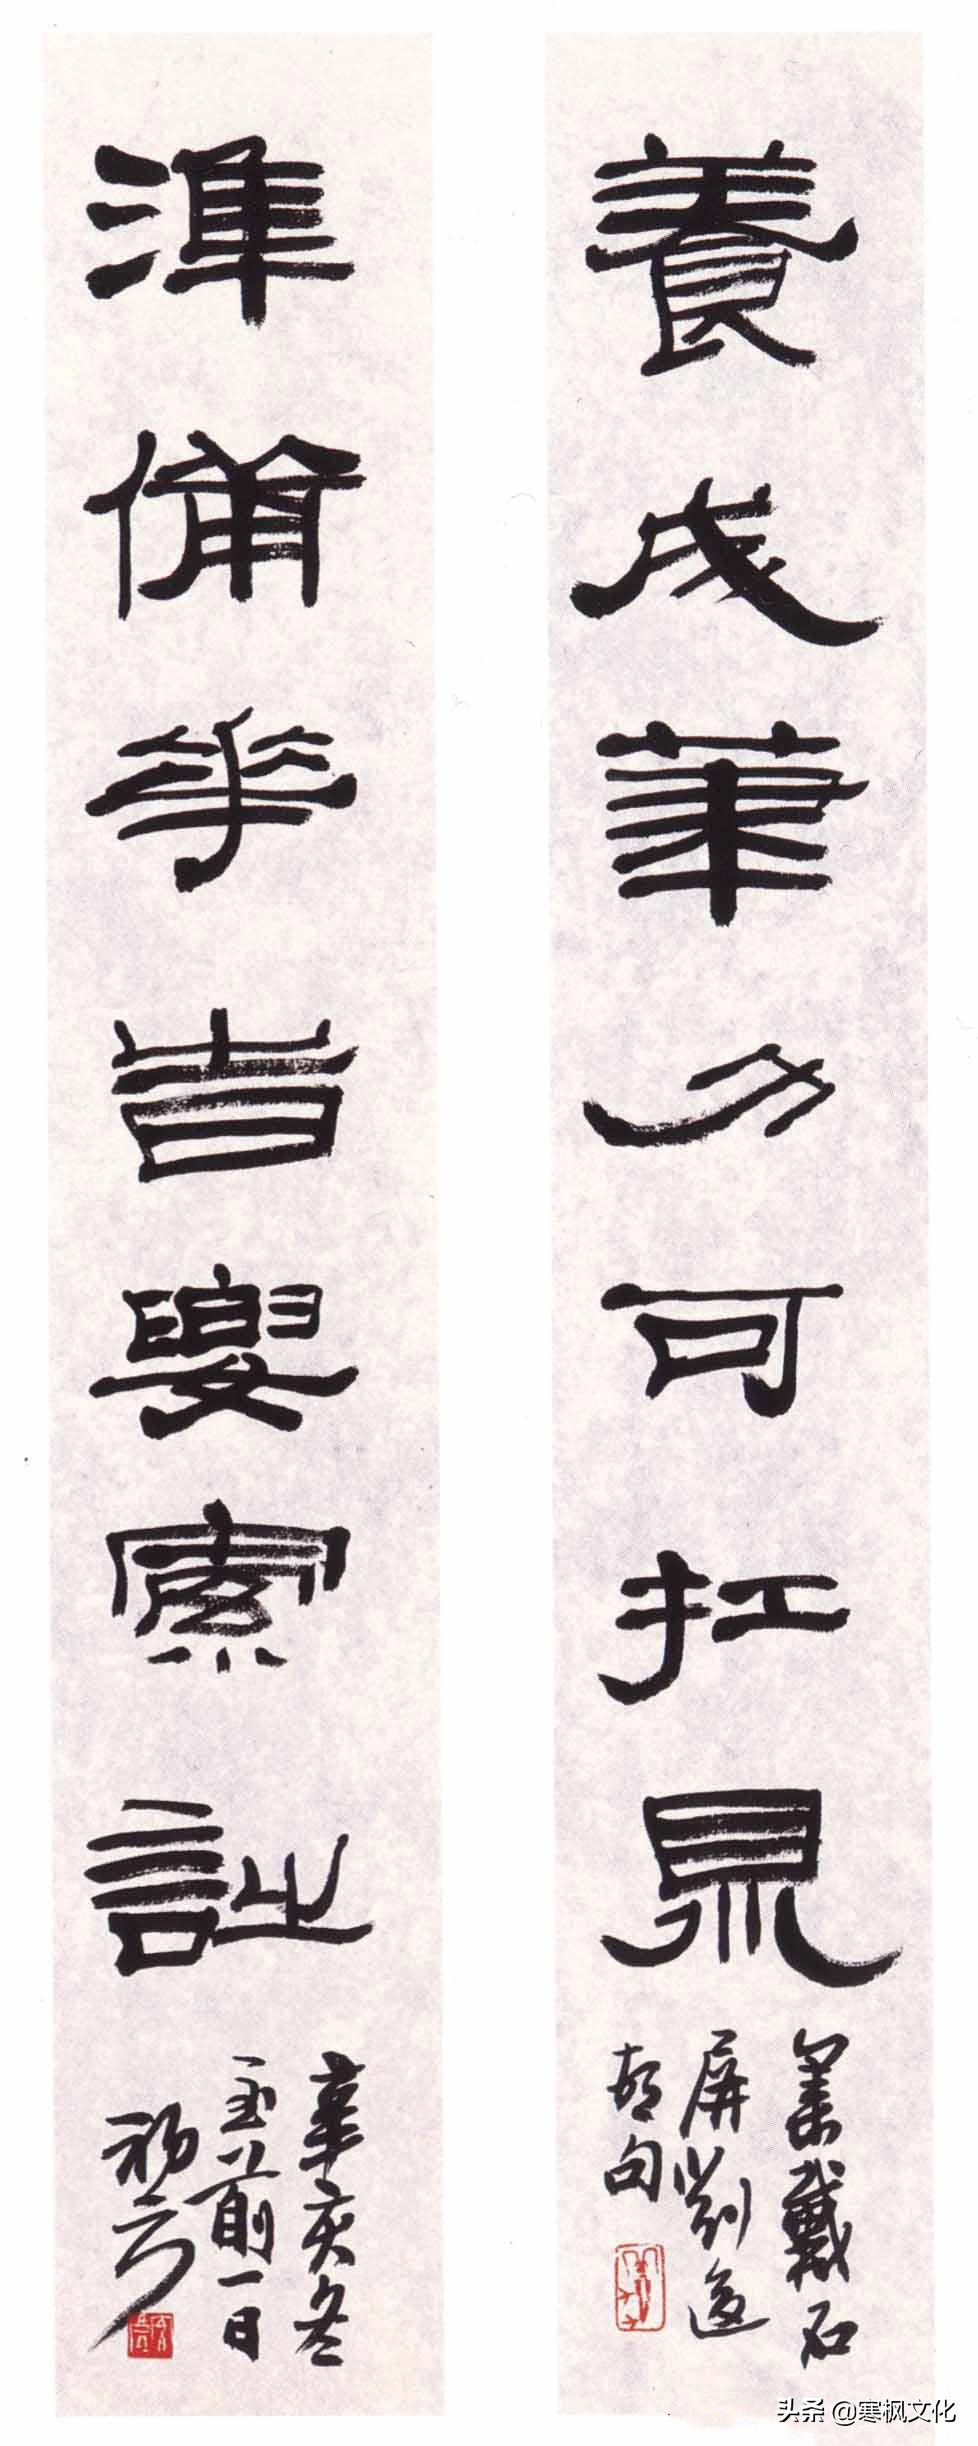 養成筆力可扛鼎
集戴石
屏劉過
句
準備華旹要索詩
辛亥冬
至前一日
头条 @寒枫文化